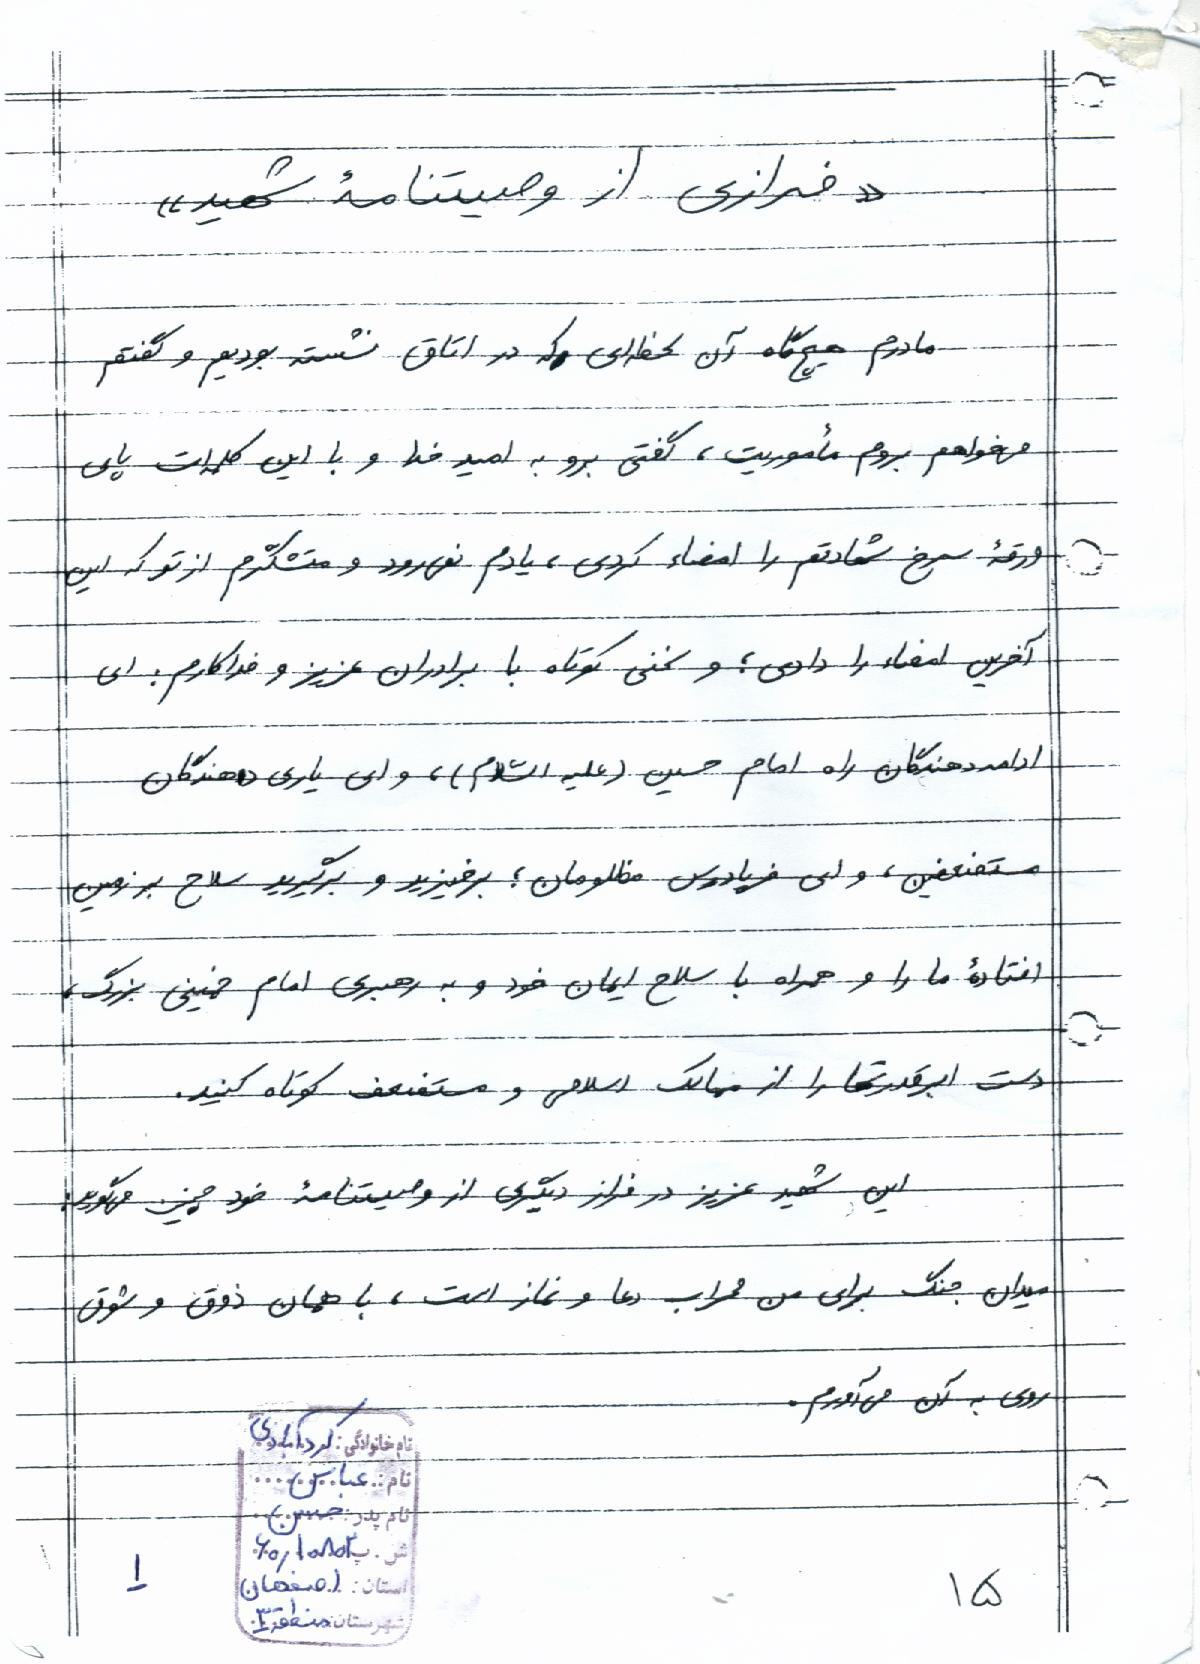 « فرازی از وصیتنامهٔ شهید »
مادرم هیچ‌گاه آن لحظه‌ای که در اتاق نشسته بودیم و گفتم
می‌خواهم بروم مأموریت، گفتی برو به امید خدا و با این کلمات پای
ورقهٔ سرخ شهادتم را امضاء کردی، یادم نمی‌رود و متشکّرم از تو که این
آخرین امضاء را دادی؛ و سخنی کوتاه با برادران عزیز و فداکارم: ای
ادامه‌دهندگان راه امام حسین (علیه السّلام)، و ای یاری دهندگان
مستضعفین، و ای فریادرس مظلومان؛ برخیزید و برگیرید سلاح بر زمین
افتادهٔ ما را و همراه با سلاح ایمان خود و به رهبری امام خمینی بزرگ،
دست ابرقدرتها را از ممالک اسلامی و مستضعف کوتاه کنید.
این شهید عزیز در فراز دیگری از وصیتنامهٔ خود چنین می‌گوید:
میدان جنگ برای من محراب دعا و نماز است، با همان ذوق و شوق
روی به آن می‌آورم.
نام خانوادگی: کردآبادی
نام: عباس
نام پدر: حسن
ش. پ
استان: اصفهان
شهرستان: منطقه ۳
۱
۱۵